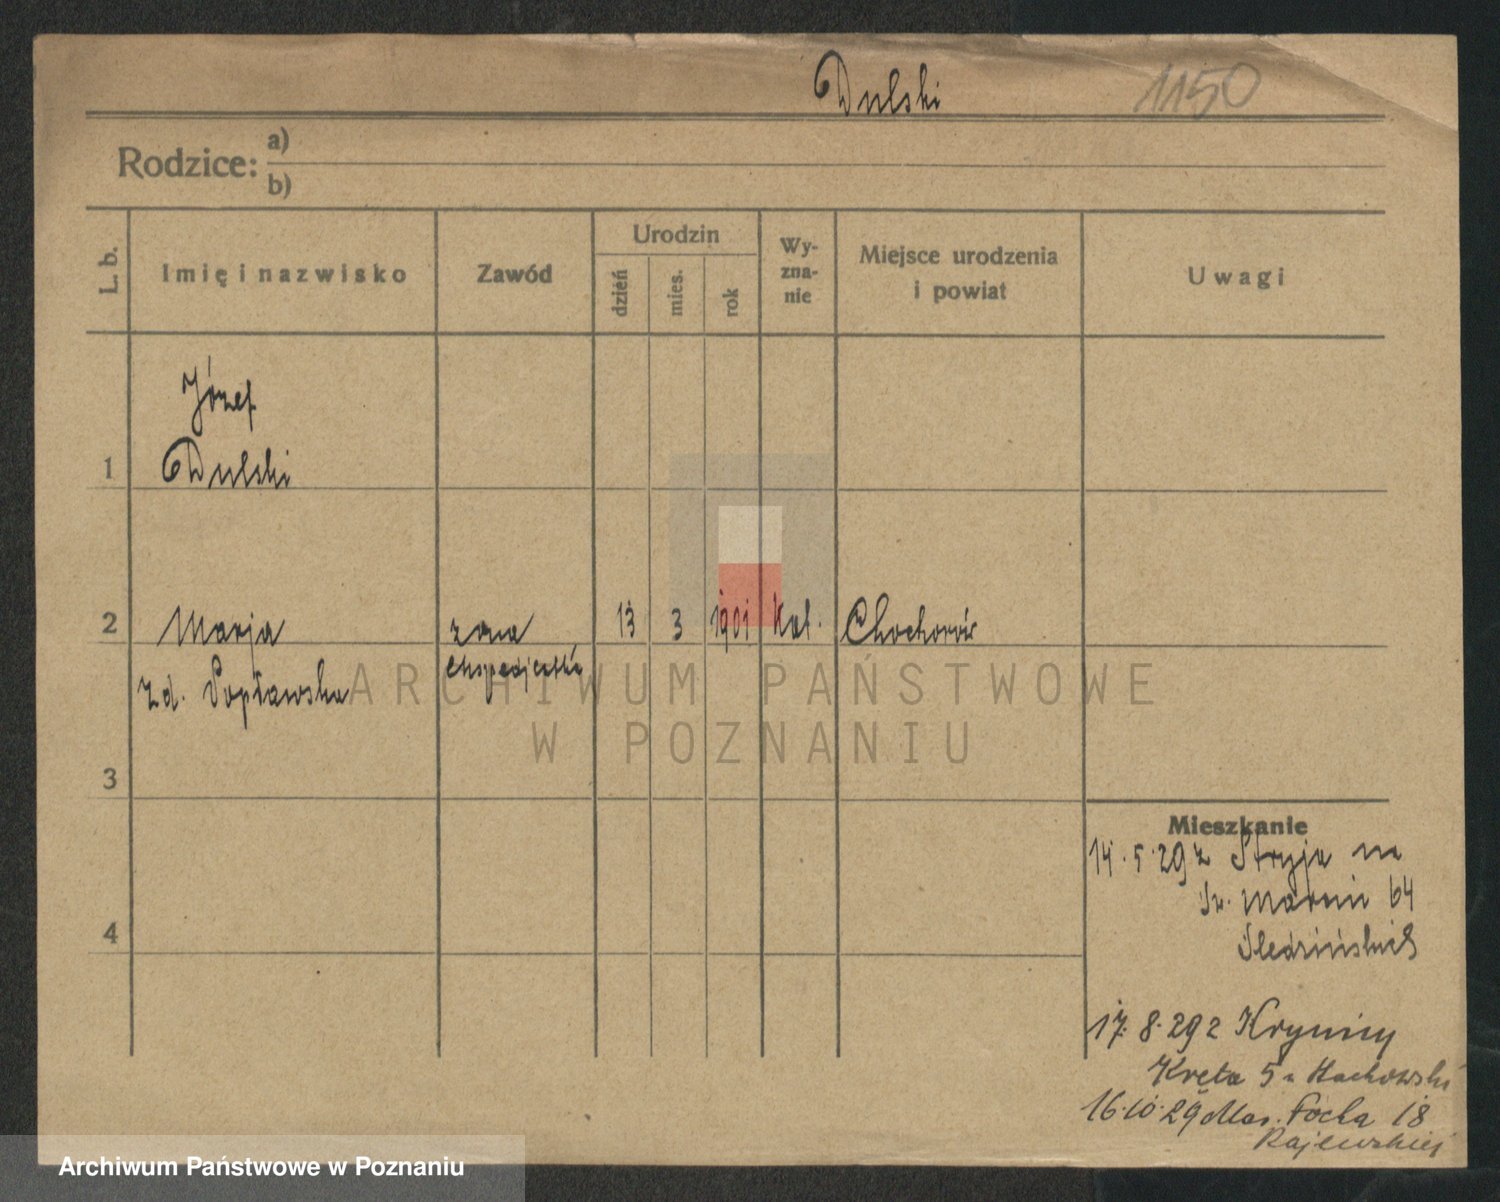 Dulski 1150
Rodzice: a)
b)
L. b. Imię i nazwisko Zawód Urodzin dzień mies. rok Wy-zna-nie Miejsce urodzenia i powiat Uwagi
Józef
1 Dulski
2 Marja żona 13 3 1901 Kat. Chochorów
zd. Popławska ekspedjentka
ARCHIWUM PAŃSTWOWE
W POZNANIU
3
Mieszkanie
14.5.29 z Stryja na
Św. Marcin 64
4
17.8.29 z Krynicy
Kręta 5 Stachowski
16.10.29 Mar. Focha 18
Rajewskiej
Archiwum Państwowe w Poznaniu